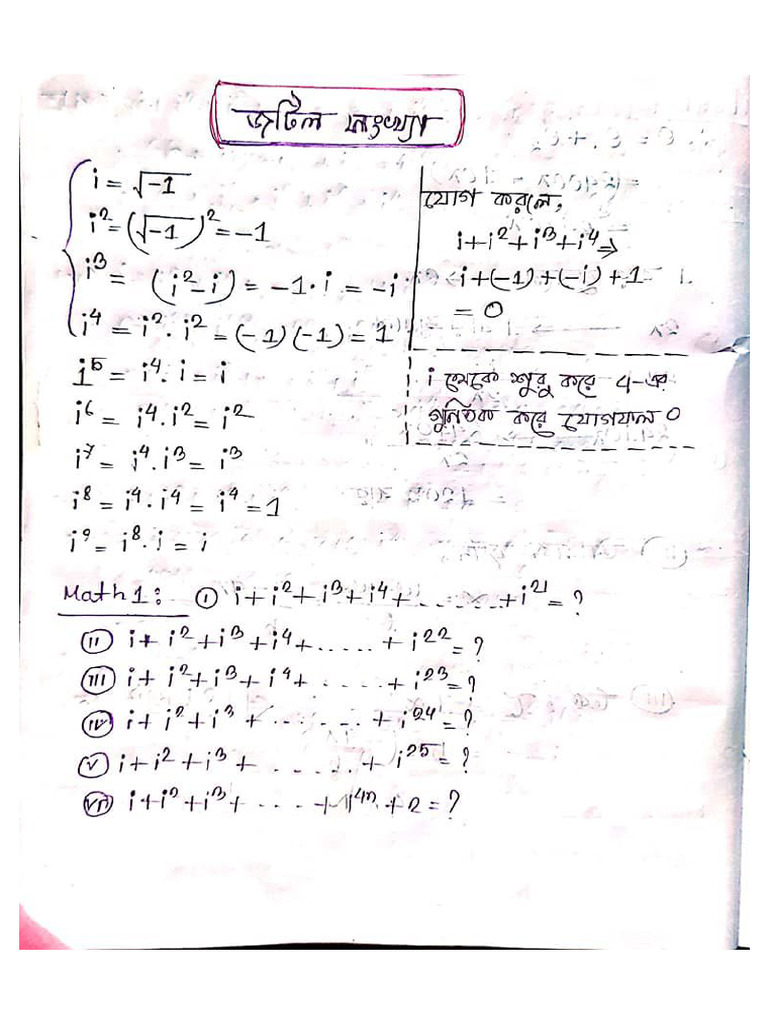 জটিল সংখ্যা
i = √-1
i² = (√-1)² = -1
i³ = (i² - i) = -1 · i = -i
i⁴ = i² · i² = (-1) (-1) = 1
i⁵ = i⁴ · i = i
i⁶ = i⁴ · i² = i²
i⁷ = i⁴ · i³ = i³
i⁸ = i⁴ · i⁴ = i⁴ = 1
i⁹ = i⁸ · i = i
যোগ করলে,
i + i² + i³ + i⁴ ⇒
i + (-1) + (-i) + 1
= 0
i থেকে শুরু করে 4-এর
গুনিতক করে যোগফল 0
Math 1: (i) i + i² + i³ + i⁴ + ....... + i²¹ = ?
(ii) i + i² + i³ + i⁴ + ..... + i²² = ?
(iii) i + i² + i³ + i⁴ + ..... + i²³ = ?
(iv) i + i² + i³ + ....... + i²⁴ = ?
(v) i + i² + i³ + ..... + i²⁵ = ?
i + i² + i³ + .... + i⁴ⁿ + 2 = ?